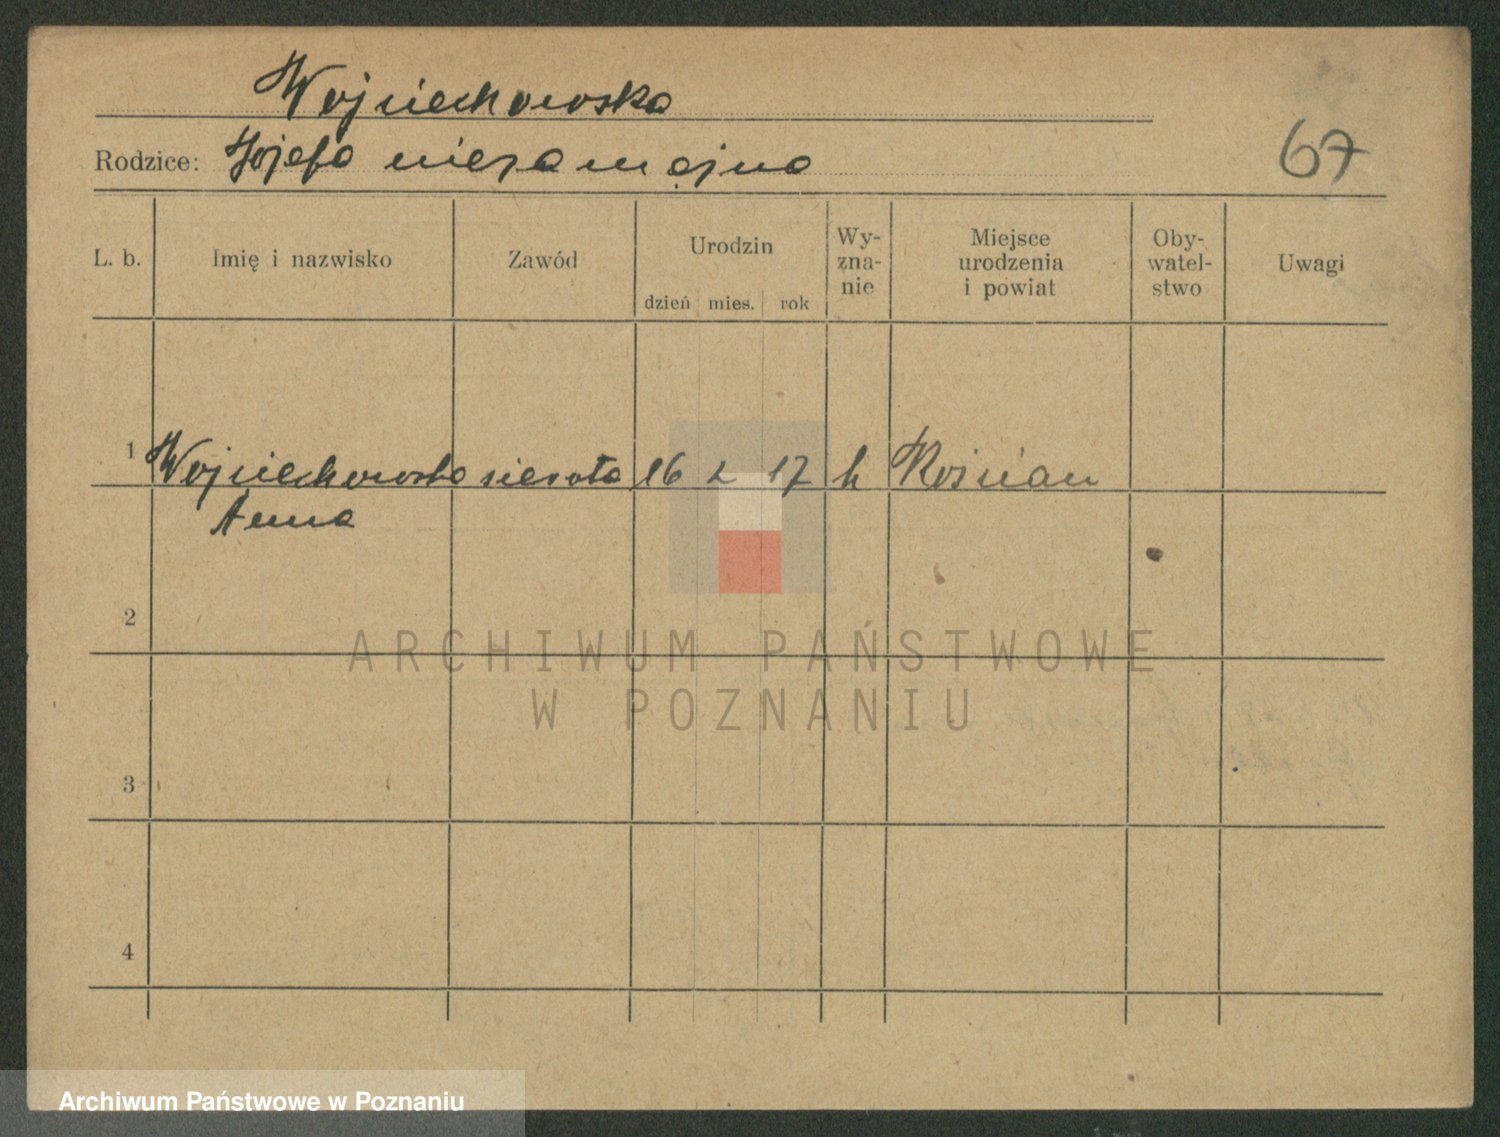 Wojciechowska
Rodzice: Józefa niezamężna
67
L. b. Imię i nazwisko Zawód Urodzin dzień mies. rok Wy-zna-nie Miejsce urodzenia i powiat Oby-watel-stwo Uwagi
1 Wojciechowska sierota 16 2 17 k Kościan
Anna
2
ARCHIWUM PAŃSTWOWE
W POZNANIU
3
4
Archiwum Państwowe w Poznaniu